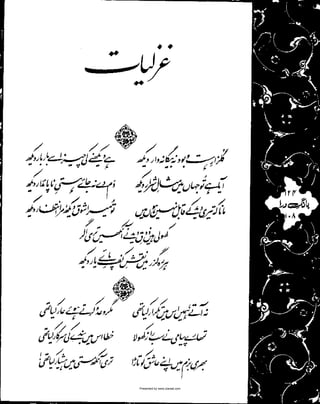 غزلیات
گلزارِ ہست و بود نہ بیگانہ وار دیکھ ہے دیکھنے کی چیز اسے بار بار دیکھ
آیا ہے تو جہاں میں مثالِ شرار دیکھ دم دے نہ جائے ہستیِ ناپائدار دیکھ
مانا کہ تیری دید کے قابل نہیں ہوں میں تو میرا شوق دیکھ، مرا انتظار دیکھ
کھولی ہیں ذوقِ دید نے آنکھیں تری اگر
ہر رہ گزر میں نقشِ کفِ پائے یار دیکھ
نہ آتے، ہمیں اس میں تکرار کیا تھی مگر وعدہ کرتے ہوئے عار کیا تھی
تمھارے پیامی نے سب راز کھولا خطا اس میں بندے کی سرکار کیا تھی
بھری بزم میں اپنے عاشق کو تاڑا تری آنکھ مستی میں ہشیار کیا تھی!
۱۲۳
بانگِ درا
۱۰۸